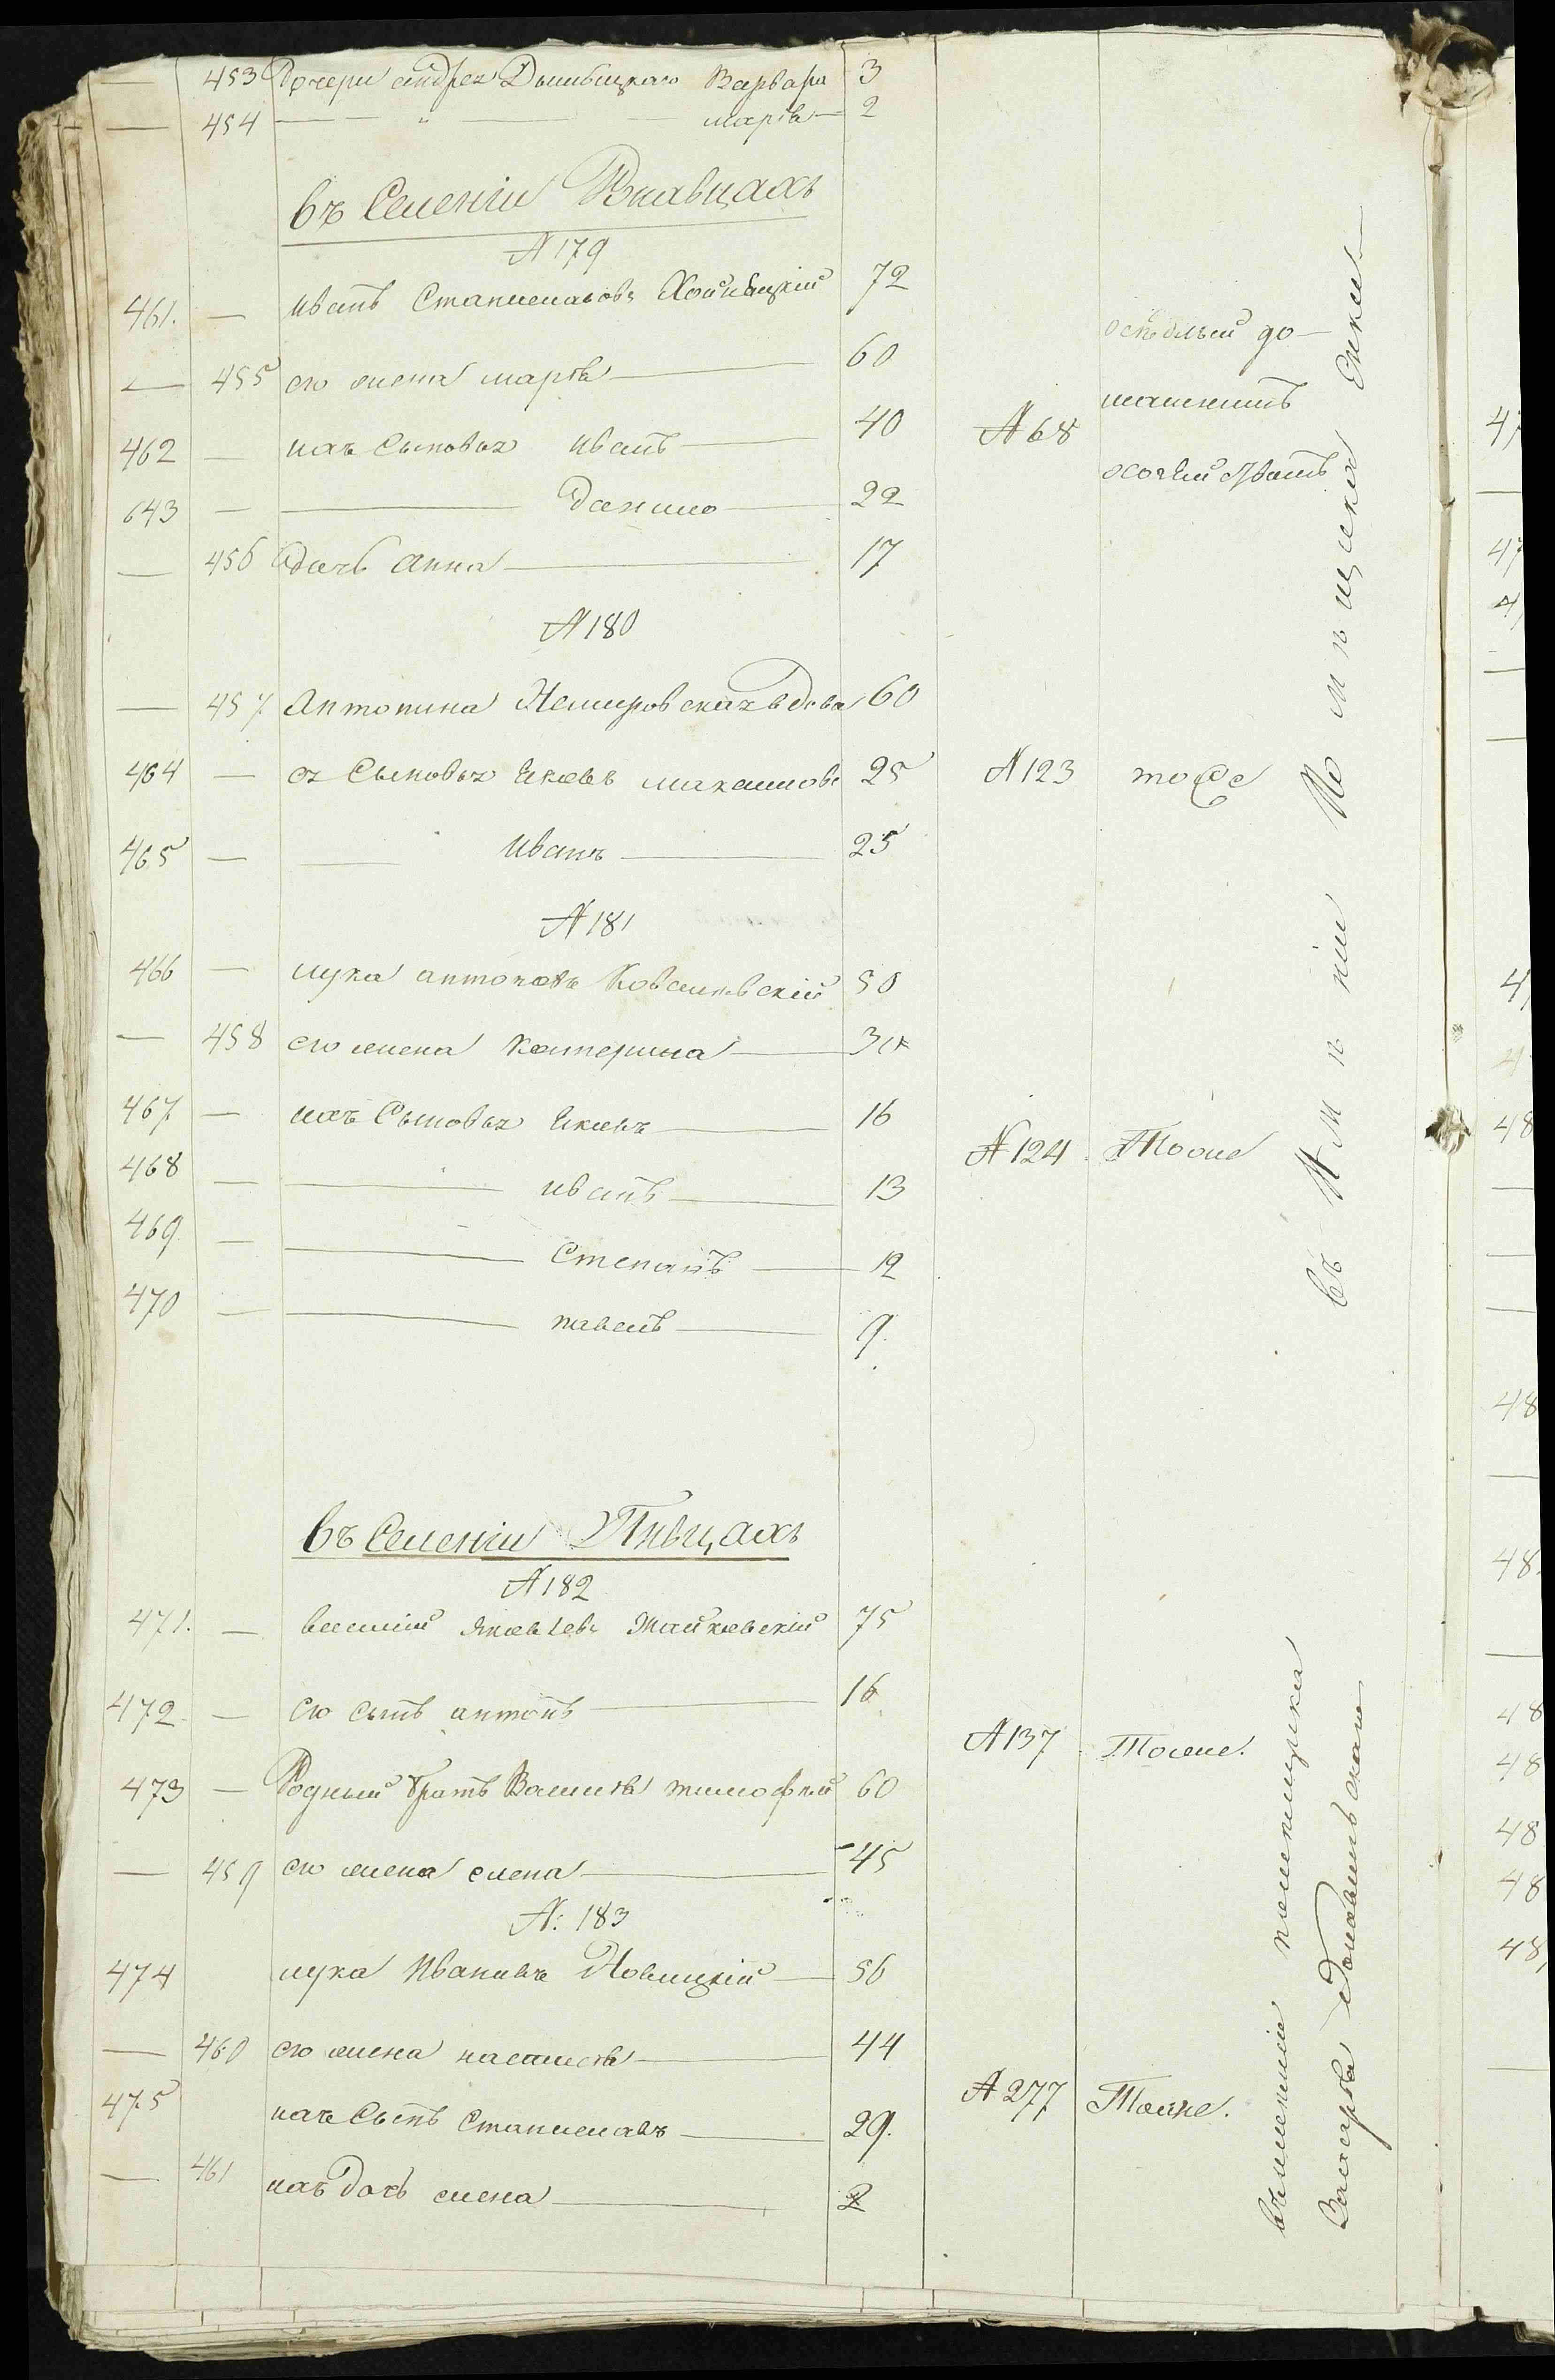 — 453 Дочери андрея Варвара 3
— 454 — " — марія — 2
въ Селеніи Юнавцахъ
№ 179
461. — иванъ Станиславовъ Хойнацкій 72
— 455 его жена марія — 60
462 — ихъ Сыновья иванъ — 40 № 68
643 — — Данило — 22
— 456 дочь анна — 17
осѣдлый до-
машнимъ
хозяйствомъ
№ 180
— 457 антонина Немировская вдова 60
464 — ея Сыновья Яковъ 25 № 123 тоже
465 — — Иванъ — 25
№ 181
466 — лука антоновъ 50
— 458 его жена Катерина — 3
467 — ихъ Сыновья Яковъ — 16
№ 124 Тоже
468 — — иванъ — 13
469 — — Степанъ — 12
470 — — павелъ — 9.
въ имѣніи Помѣщика
въ Селеніи Пивцахъ
№ 182
471. — василій Яковлевъ 75
472 — его сынъ антонъ — 16
№ 137 Тоже.
473 — Родный братъ тимофей 60
— 459 его жена елена — 45
№: 183
474 лука Ивановъ Новицкій — 56
— 460 его жена настасія — 44
№ 277 Тоже.
475 ихъ Сынъ Станиславъ — 29.
— 461 ихъ дочь елена — 2
въ имѣніи помѣщика